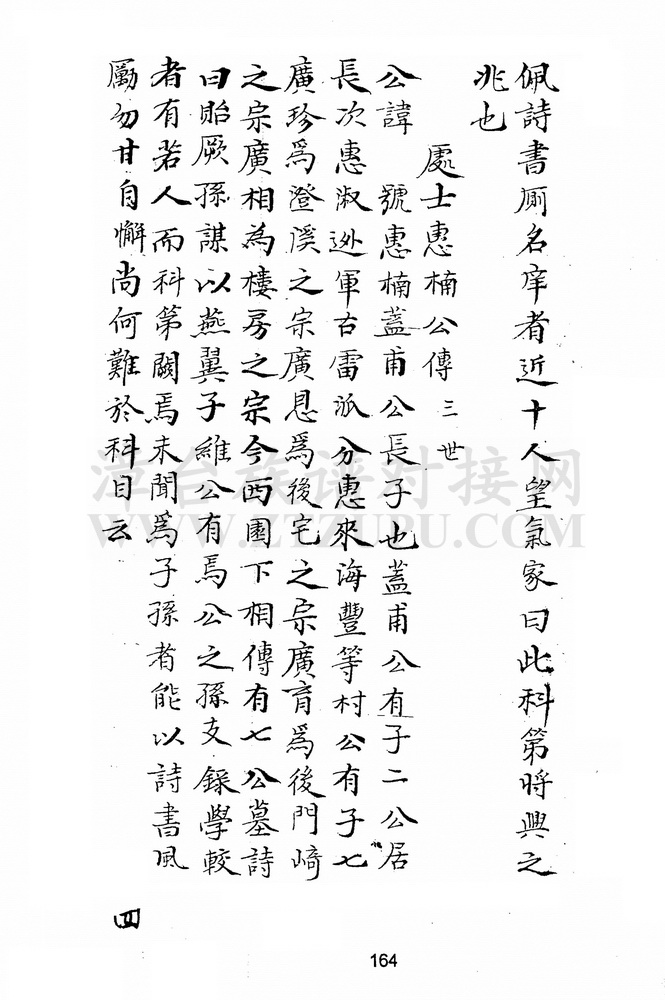 佩詩書厠名庠者近十人望氣家曰此科第將興之
兆也
處士惠楠公傳 三世
公諱 號惠楠蓋甫公長子也蓋甫公有子二公居
長次惠淑迯軍古雷派分惠來海豐等村公有子七
廣珍爲澄溪之宗廣恩爲後宅之宗廣育爲後門﨑
之宗廣相為樓房之宗今西園下相傳有七公墓詩
曰貽厥孫謀以燕翼子維公有焉公之孫支録學較
者有若人而科第闕焉未聞爲子孫者能以詩書風
勵勿甘自懈尚何難於科目云
四
164
漳台族谱对接网
WWW.ZTZUPU.COM